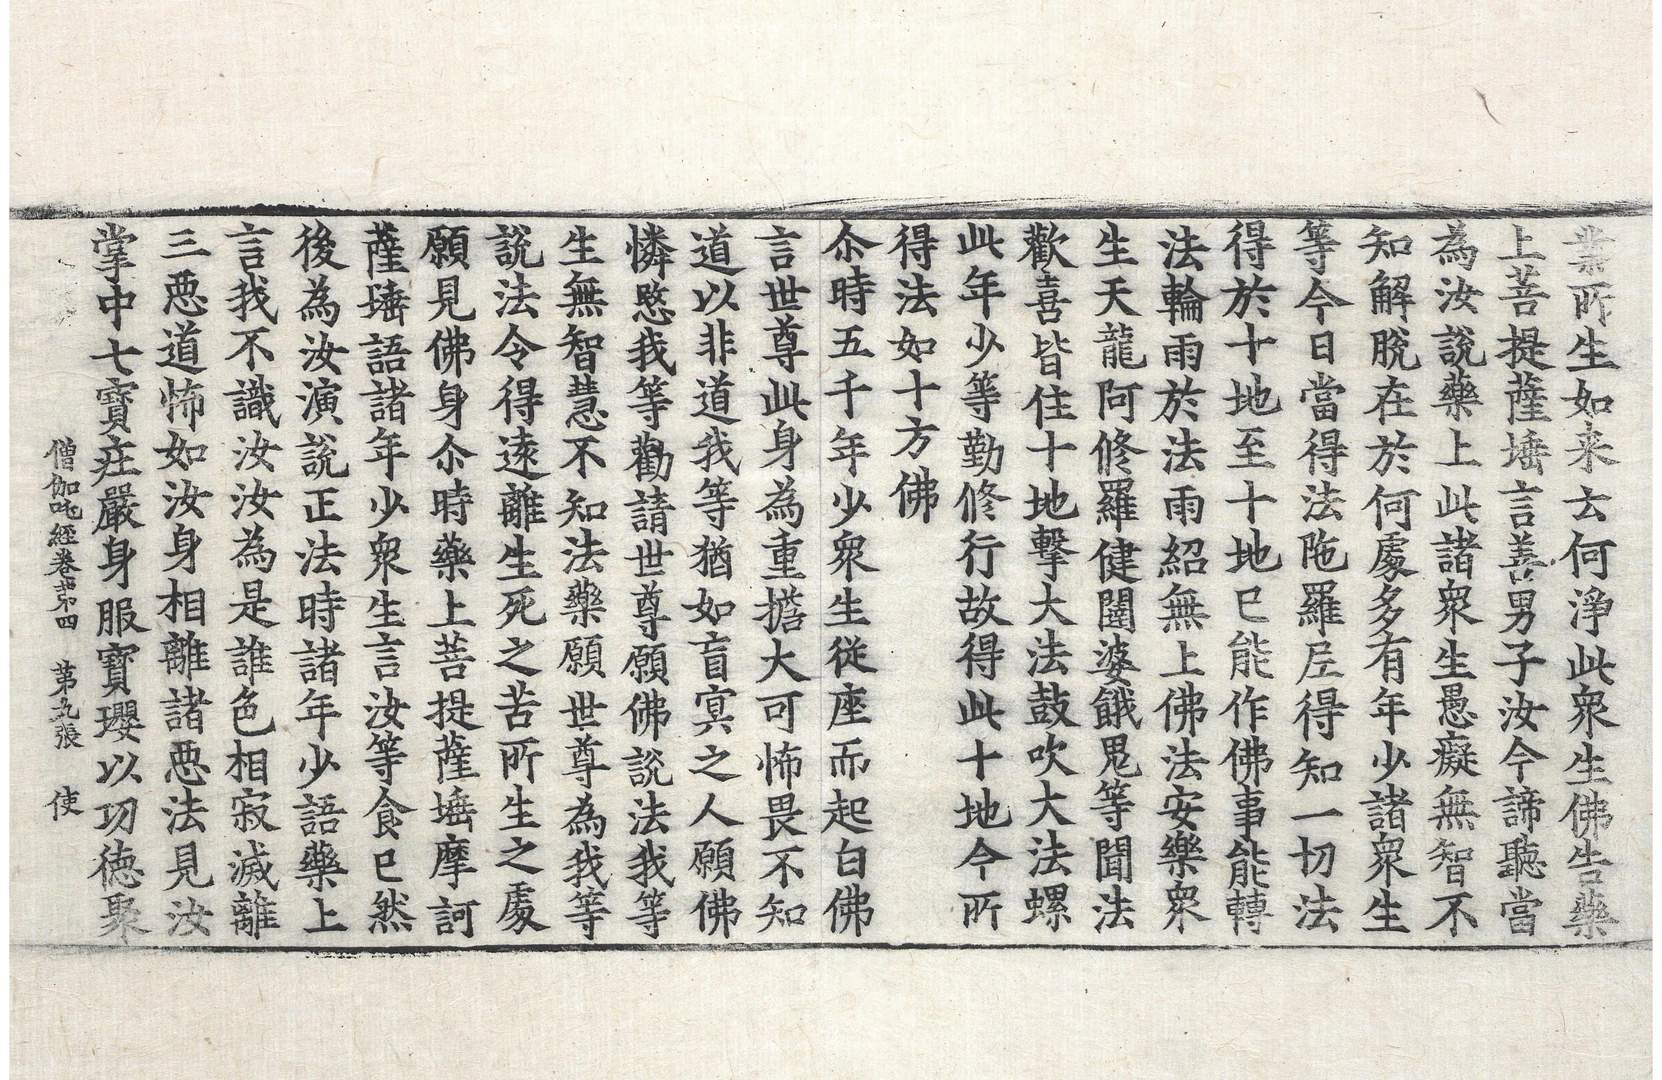 業所生如来云何淨此衆生佛告藥
上菩提薩埵言善男子汝今諦聽當
為汝說藥上此諸衆生愚癡無智不
知解脫在於何處多有年少諸衆生
等今日當得法陁羅尼得知一切法
得於十地至十地已能作佛事能轉
法輪雨於法雨紹無上佛法安樂衆
生天龍阿修羅健闥婆餓鬼等聞法
歡喜皆住十地擊大法鼓吹大法螺
此年少等勤修行故得此十地今所
得法如十方佛
尒時五千年少衆生從座而起白佛
言世尊此身為重擔大可怖畏不知
道以非道我等猶如盲冥之人願佛
憐愍我等勸請世尊願佛說法我等
生無智慧不知法藥願世尊為我等
說法令得遠離生死之苦所生之處
願見佛身尒時藥上菩提薩埵摩訶
薩埵語諸年少衆生言汝等食已然
後為汝演說正法時諸年少語藥上
言我不識汝汝為是誰色相寂滅離
三惡道怖如汝身相離諸惡法見汝
掌中七寶庄嚴身服寶瓔以功德聚
僧伽吒經卷第四 第九張 使